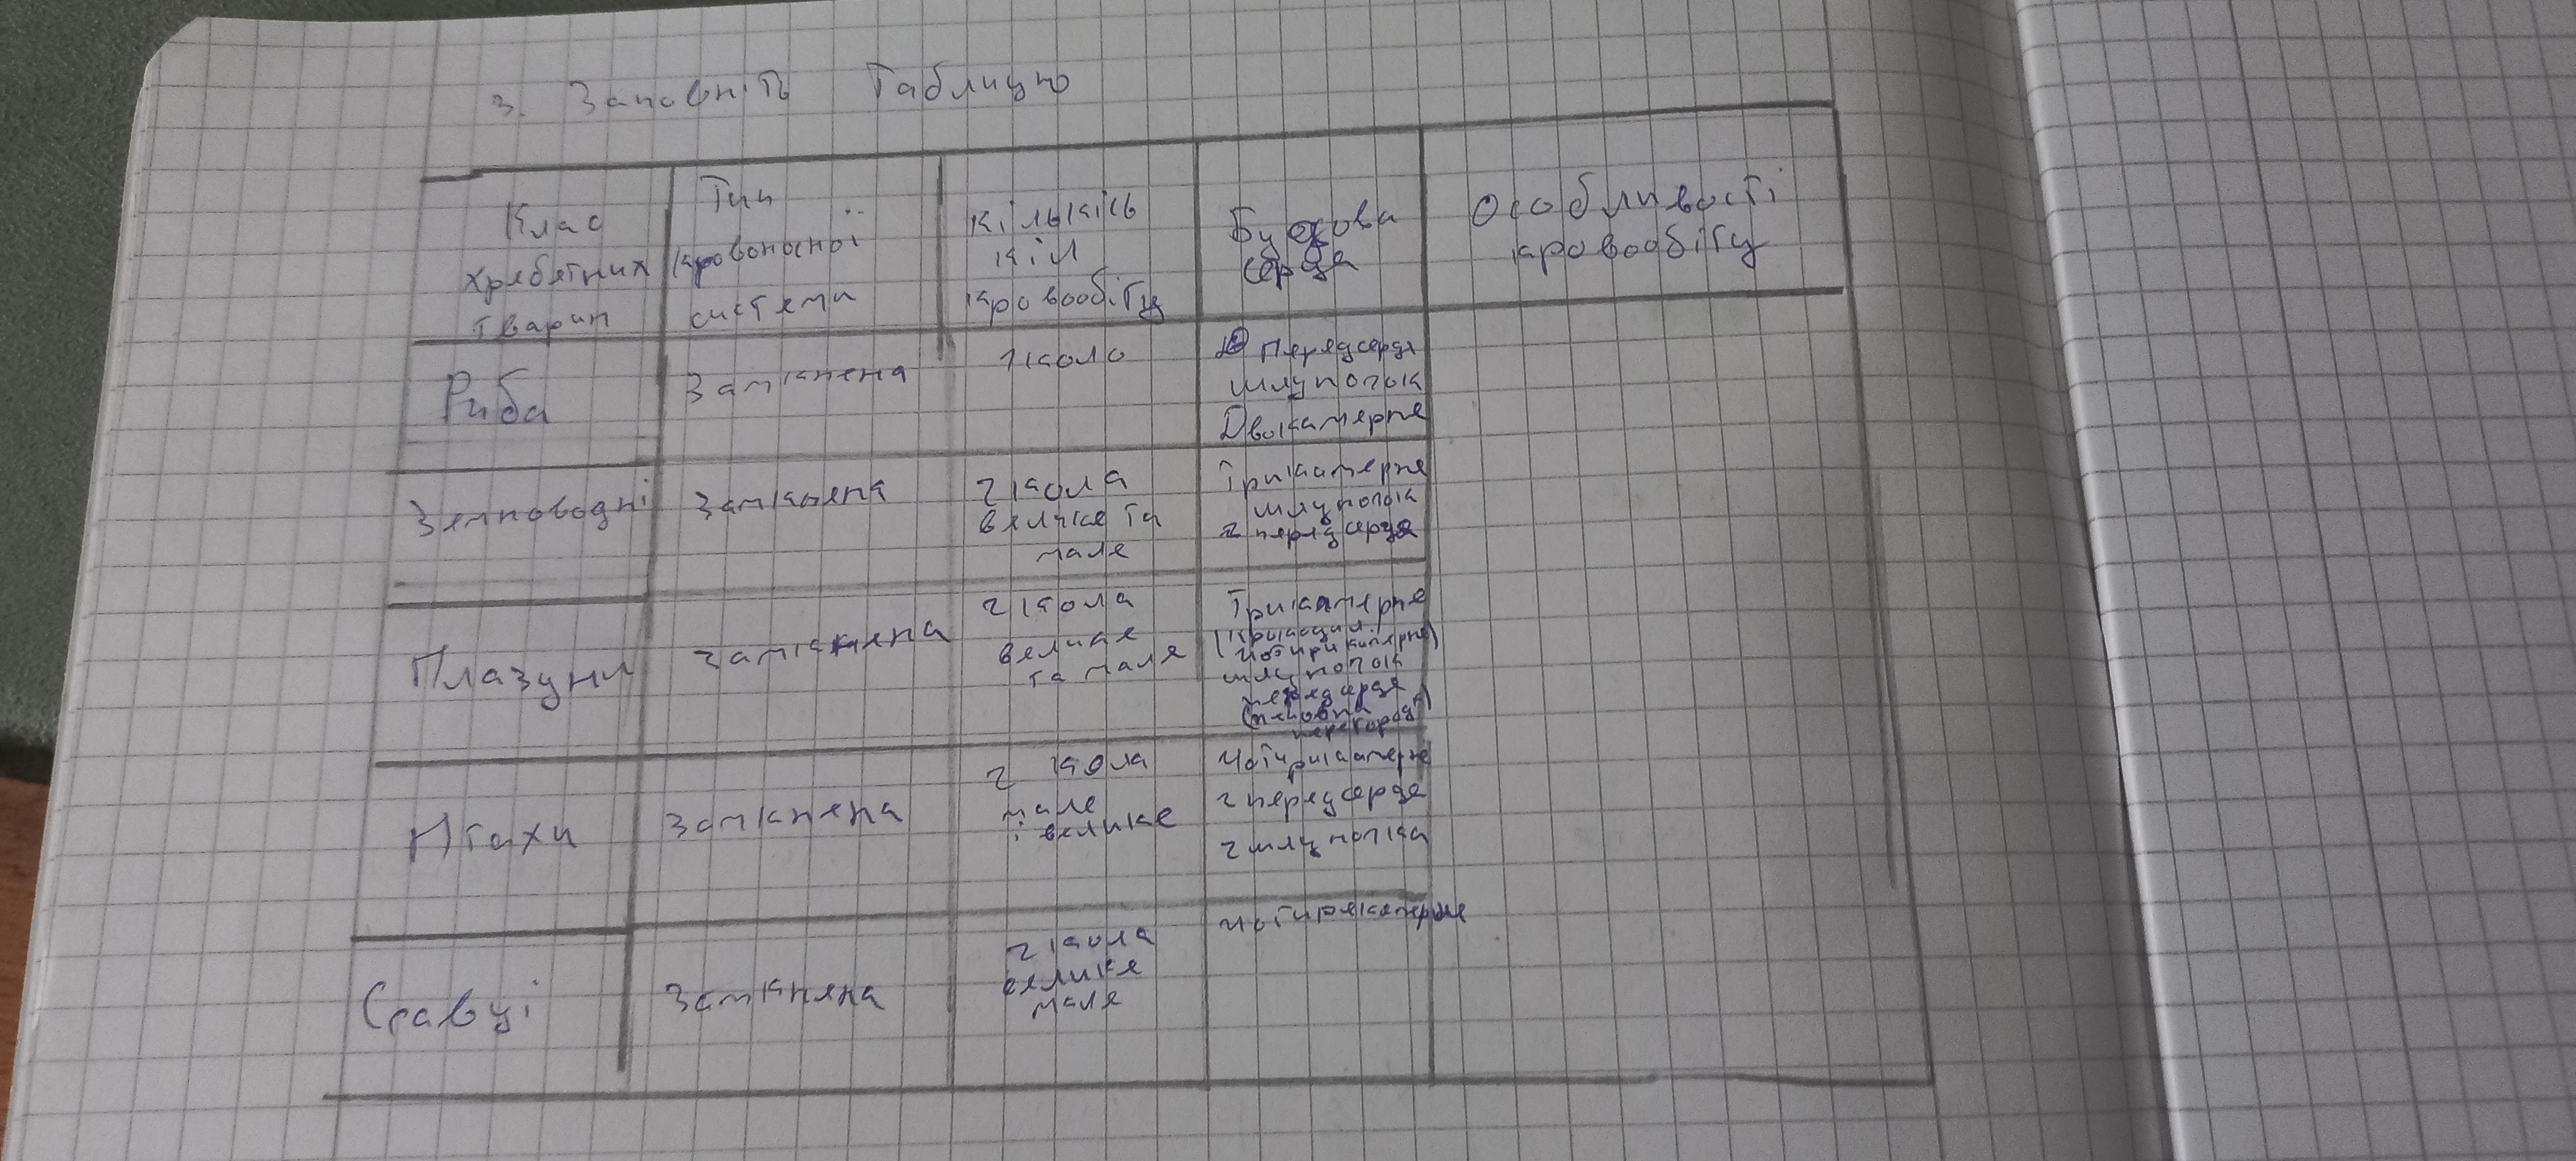 3. Заповніть таблицю
Клас
хребетних
тварин
Тип
кровоносної
системи
Кількість
кіл
кровообігу
Будова
серця
Особливості
кровообігу
Риба
Замкнена
1 коло
передсердя
шлуночок
Двокамерне
Земноводні
Замкнена
2 кола
велике та
мале
Трикамерне
шлуночок
2 передсердя
Плазуни
Замкнена
2 кола
велике
та мале
Трикамерне
(крокодил
чотирикамерне)
шлуночок
передсердя
(неповна
перегород)
Птахи
Замкнена
2 кола
мале
і велике
Чотирикамерне
2 передсердя
2 шлуночка
Ссавці
Замкнена
2 кола
велике
мале
чотирикамерне